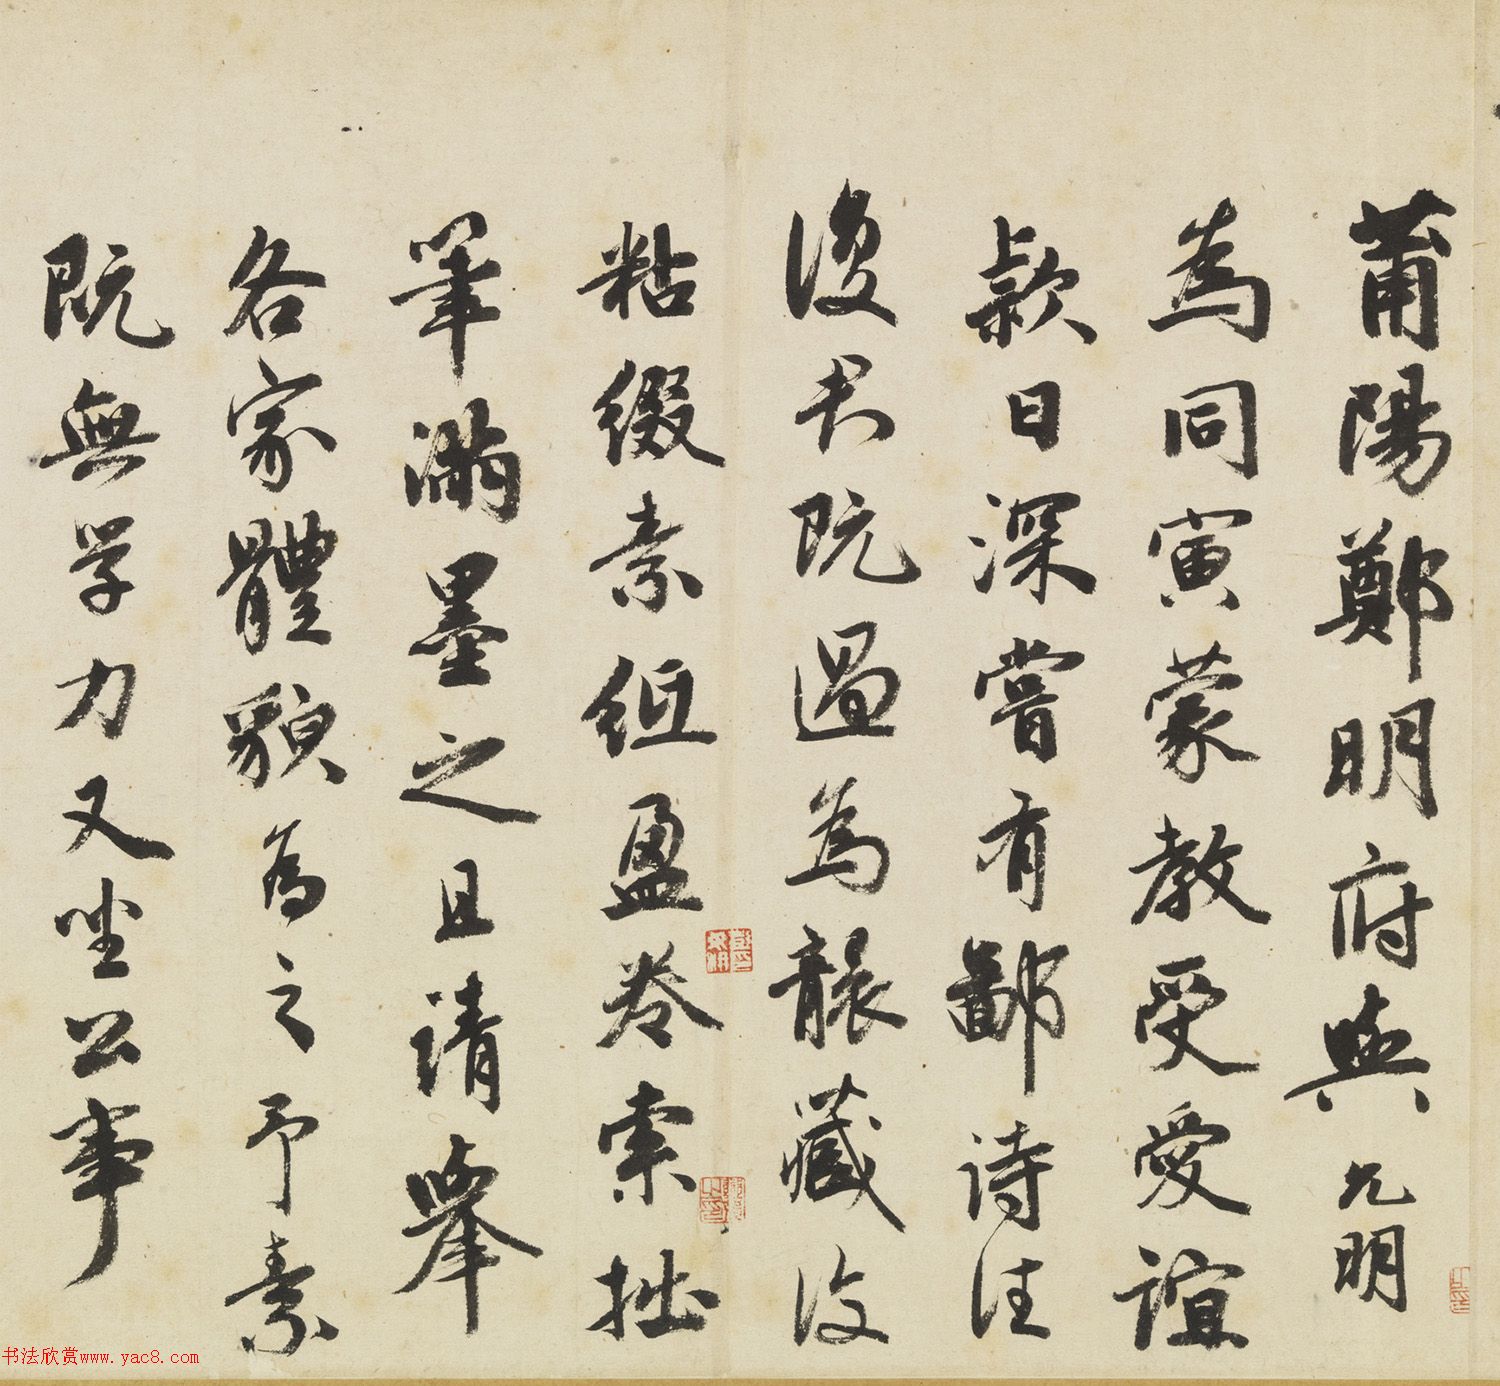 莆陽鄭明府與允明
為同寅蒙教受愛誼
款日深嘗有鄙詩往
復君既過為賬藏復
粘綴素紙盈卷索拙
筆滿墨之且請舉
各家體貌為之予素
既無学力又坐公事
书法欣赏www.yac8.com